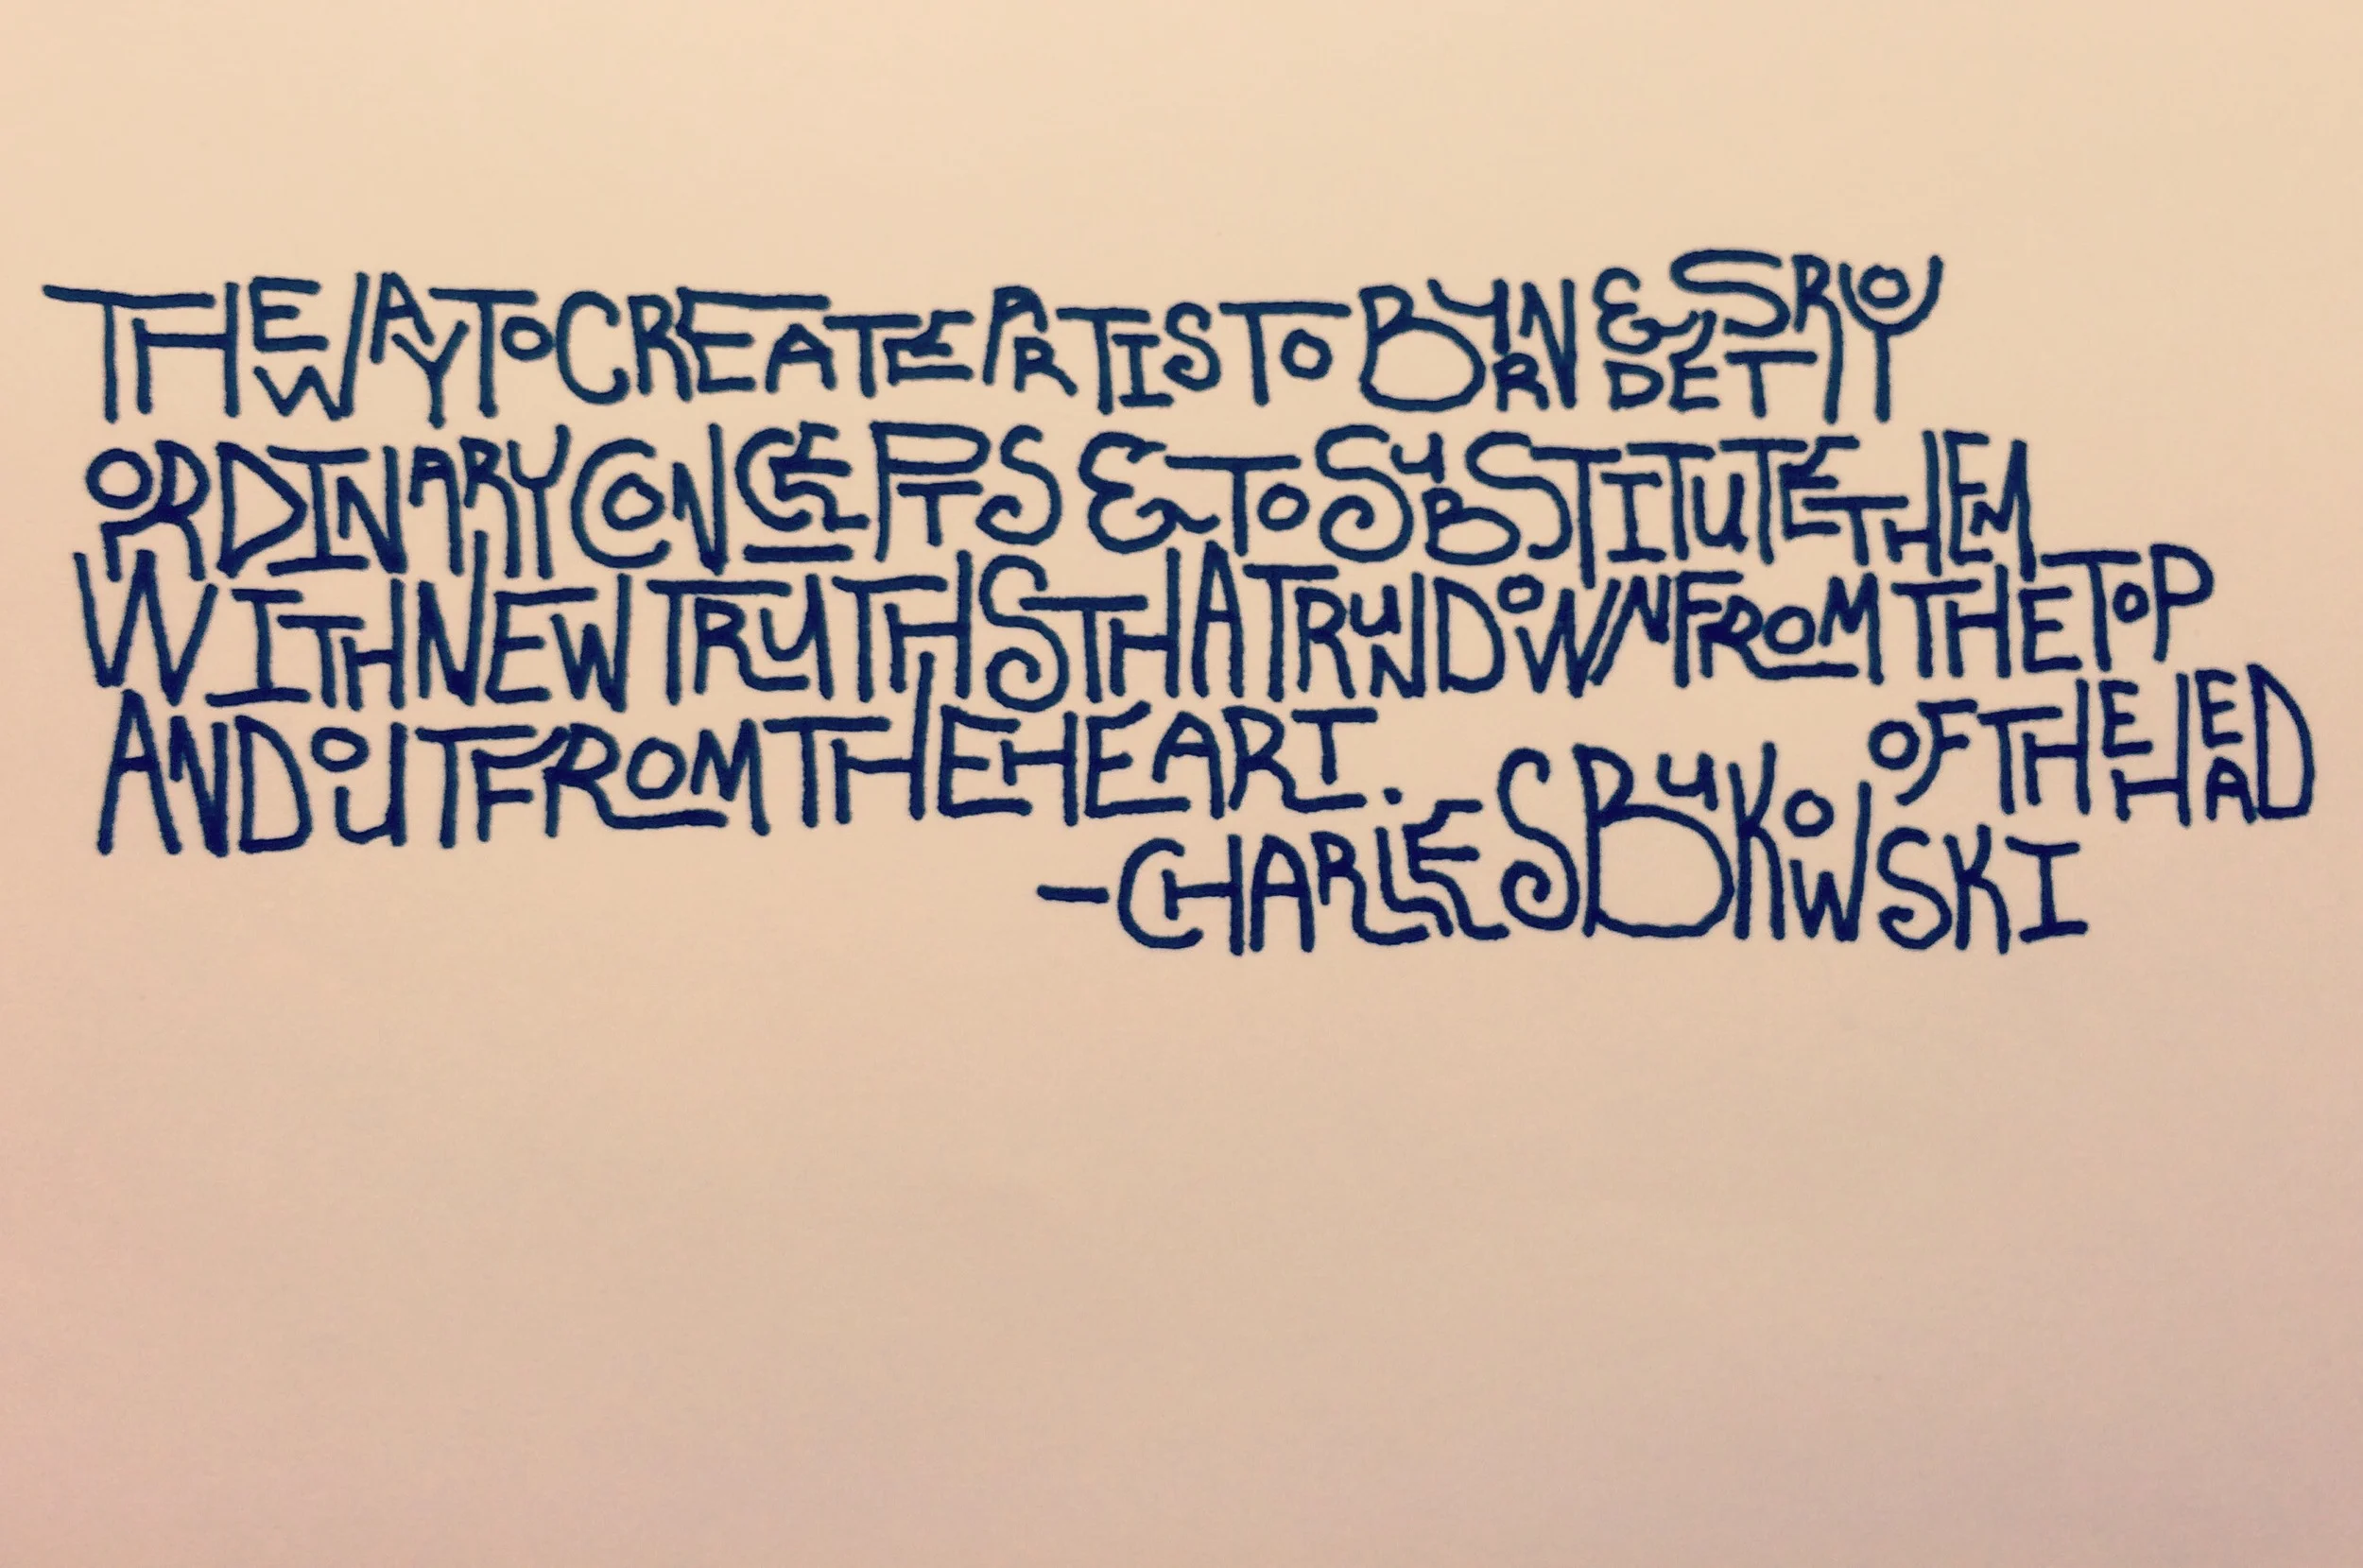 THE WAY TO CREATE ART IS TO BURN & DESTROY
ORDINARY CONCEPTS & TO SUBSTITUTE THEM
WITH NEW TRUTHS THAT RUN DOWN FROM THE TOP
OF THE HEAD
AND OUT FROM THE HEART.
—CHARLES BUKOWSKI